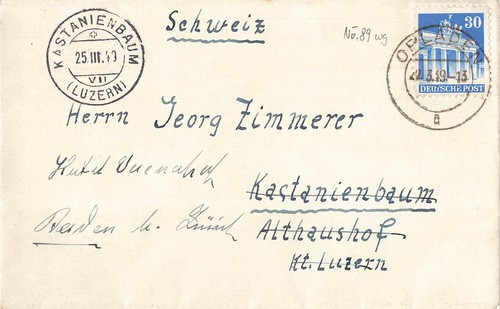 Schweiz
No. 89 wg
30
DEUTSCHE POST
OPLADEN
3.49-13
a
KASTANIENBAUM
25.III.49
VII
(LUZERN)
Herrn Jeorg Zimmerer
Kastanienbaum
Althaushof
Kt. Luzern
Baden b. Zürich